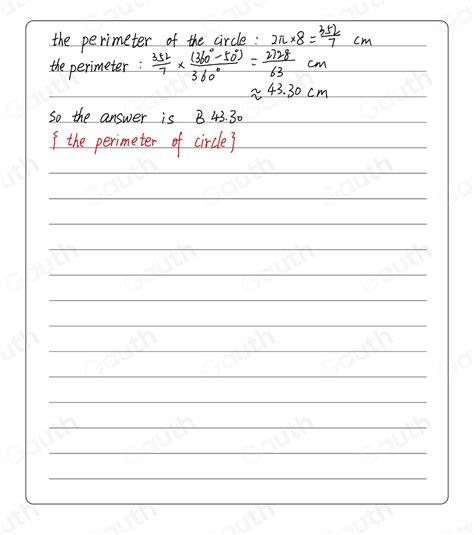 the perimeter of the circle : 2π×8 = 352/7 cm
the perimeter : 352/7 × (360°-50°)/360° = 2728/63 cm
≈ 43.30 cm
So the answer is B 43.30
{ the perimeter of circle}
Gauth